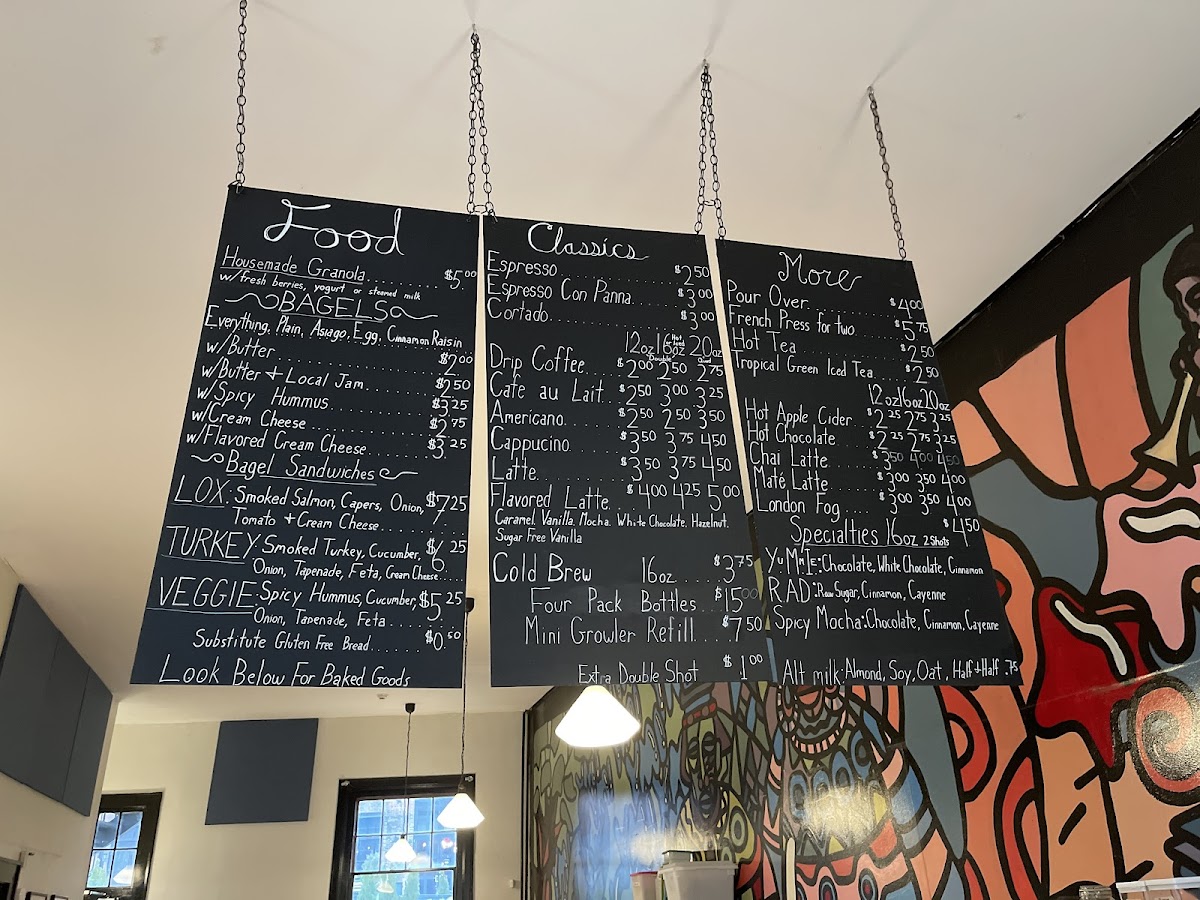 Food
Housemade Granola........ $5.00
w/fresh berries, yogurt or steamed milk
BAGELS
Everything, Plain, Asiago, Egg, Cinnamon Raisin
w/Butter........ $2.00
w/Butter + Local Jam........ $2.50
w/Spicy Hummus........ $3.25
w/Cream Cheese........ $2.75
w/Flavored Cream Cheese........ $3.25
Bagel Sandwiches
LOX: Smoked Salmon, Capers, Onion, $7.25
Tomato + Cream Cheese........
TURKEY: Smoked Turkey, Cucumber, $6.25
Onion, Tapenade, Feta, Cream Cheese....
VEGGIE: Spicy Hummus, Cucumber, $5.25
Onion, Tapenade, Feta........
Substitute Gluten Free Bread........ $0.50
Look Below For Baked Goods
Classics
Espresso........ $2.50
Espresso Con Panna........ $3.00
Cortado........ $3.00
Hot or Iced
12oz 16oz 20oz
Double Quad
Drip Coffee.... $2.00 2.50 2.75
Cafe au Lait.. $2.50 3.00 3.25
Americano.... $2.50 2.50 3.50
Cappucino.... $3.50 3.75 4.50
Latte........ $3.50 3.75 4.50
Flavored Latte.. $4.00 4.25 5.00
Caramel, Vanilla, Mocha, White Chocolate, Hazelnut,
Sugar Free Vanilla
Cold Brew 16oz $3.75
Four Pack Bottles... $15.00
Mini Growler Refill.... $7.50
Extra Double Shot $1.00
More
Pour Over........ $4.00
French Press for two........ $5.75
Hot Tea........ $2.50
Tropical Green Iced Tea.... $2.50
12oz 16oz 20oz
Hot Apple Cider.. $2.25 2.75 3.25
Hot Chocolate.... $2.25 2.75 3.25
Chai Latte.... $3.50 4.00 4.50
Maté Latte.... $3.00 3.50 4.00
London Fog.... $3.00 3.50 4.00
Specialties 16oz 2 Shots $4.50
YuMMIE: Chocolate, White Chocolate, Cinnamon
RAD: Raw Sugar, Cinnamon, Cayenne
Spicy Mocha: Chocolate, Cinnamon, Cayenne
Alt milk: Almond, Soy, Oat, Half + Half .75